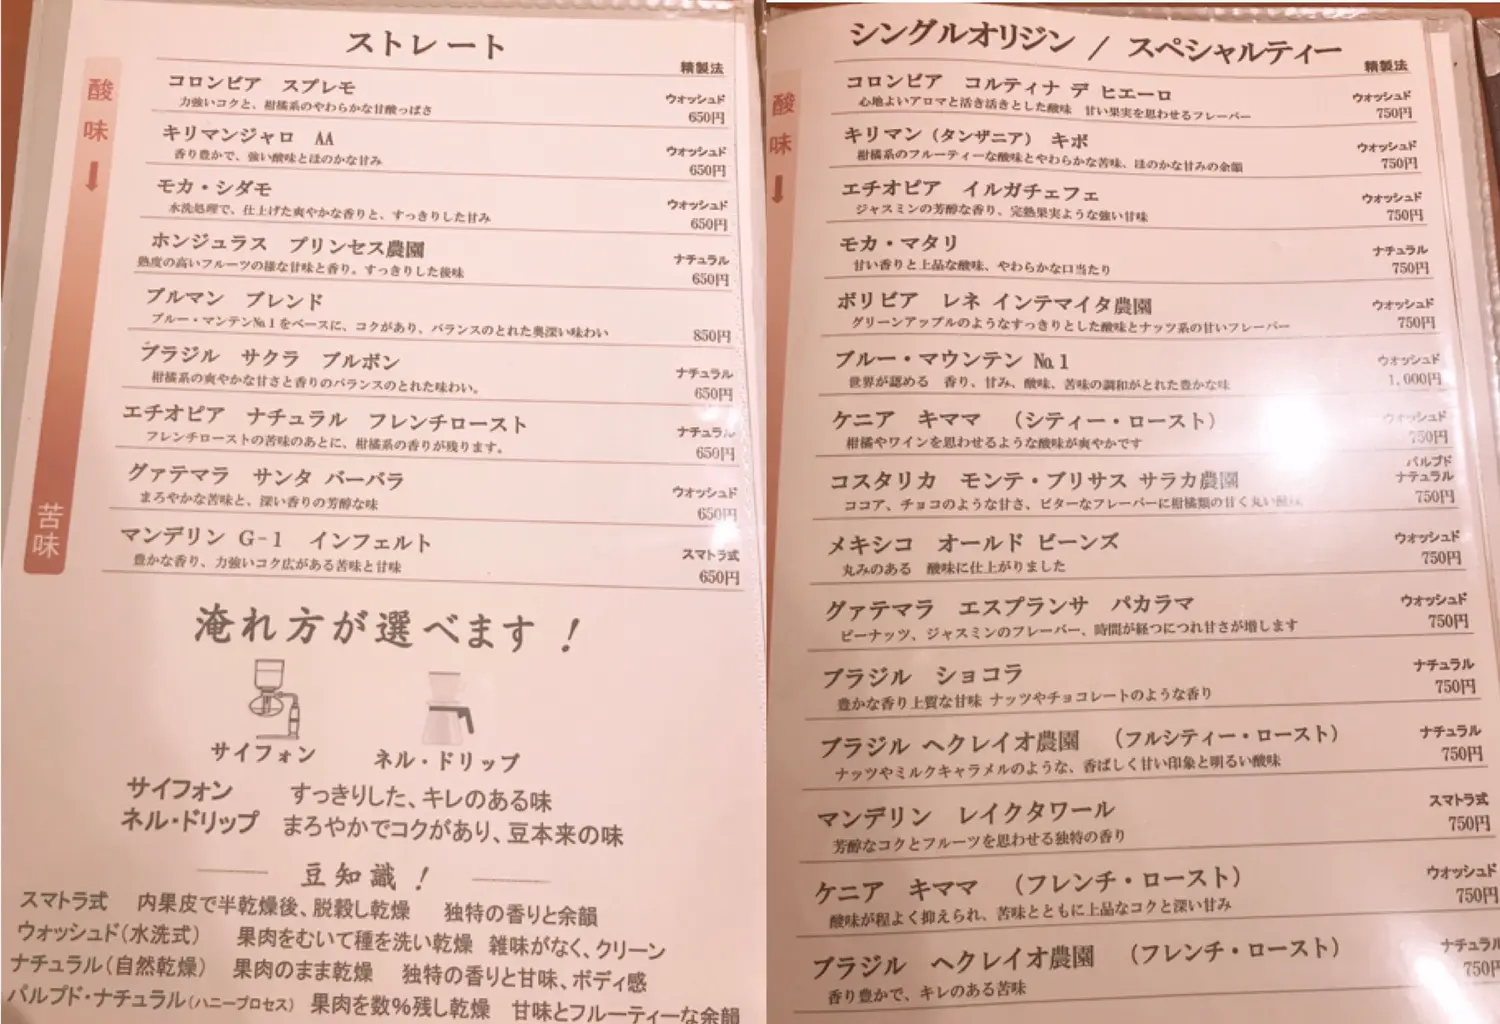 ストレート
精製法
酸味
苦味
コロンビア　スプレモ
ウォッシュド
力強いコクと、柑橘系のやわらかな甘酸っぱさ
650円
キリマンジャロ　AA
ウォッシュド
香り豊かで、強い酸味とほのかな甘み
650円
モカ・シダモ
ウォッシュド
水洗処理で、仕上げた爽やかな香りと、すっきりした甘み
650円
ホンジュラス　プリンセス農園
ナチュラル
熟度の高いフルーツの様な甘味と香り。すっきりした後味
650円
ブルマン　ブレンド
ブルー・マンテン№1をベースに、コクがあり、バランスのとれた奥深い味わい
850円
ブラジル　サクラ　ブルボン
ナチュラル
柑橘系の爽やかな甘さと香りのバランスのとれた味わい。
650円
エチオピア　ナチュラル　フレンチロースト
ナチュラル
フレンチローストの苦味のあとに、柑橘系の香りが残ります。
650円
グァテマラ　サンタ バーバラ
ウォッシュド
まろやかな苦味と、深い香りの芳醇な味
650円
マンデリン G-1　インフェルト
スマトラ式
豊かな香り、力強いコク広がある苦味と甘味
650円
淹れ方が選べます！
サイフォン　ネル・ドリップ
サイフォン　すっきりした、キレのある味
ネル・ドリップ　まろやかでコクがあり、豆本来の味
豆知識！
スマトラ式　内果皮で半乾燥後、脱穀し乾燥　独特の香りと余韻
ウォッシュド(水洗式)　果肉をむいて種を洗い乾燥　雑味がなく、クリーン
ナチュラル(自然乾燥)　果肉のまま乾燥　独特の香りと甘味、ボディ感
パルプド・ナチュラル(ハニープロセス)　果肉を数%残し乾燥　甘味とフルーティーな余韻
シングルオリジン / スペシャルティー
精製法
酸味
コロンビア　コルティナ デ ヒエーロ
ウォッシュド
心地よいアロマと活き活きとした酸味　甘い果実を思わせるフレーバー
750円
キリマン（タンザニア）　キボ
ウォッシュド
柑橘系のフルーティーな酸味とやわらかな苦味、ほのかな甘みの余韻
750円
エチオピア　イルガチェフェ
ウォッシュド
ジャスミンの芳醇な香り、完熟果実ような強い甘味
750円
モカ・マタリ
ナチュラル
甘い香りと上品な酸味、やわらかな口当たり
750円
ボリビア　レネ インテマイタ農園
ウォッシュド
グリーンアップルのようなすっきりとした酸味とナッツ系の甘いフレーバー
750円
ブルー・マウンテン №1
ウォッシュド
世界が認める　香り、甘み、酸味、苦味の調和がとれた豊かな味
1,000円
ケニア　キママ　（シティー・ロースト）
ウォッシュド
柑橘やワインを思わせるような酸味が爽やかです
750円
コスタリカ　モンテ・ブリサス サラカ農園
パルプド
ナテュラル
ココア、チョコのような甘さ、ビターなフレーバーに柑橘類の甘く丸い酸味
750円
メキシコ　オールド ビーンズ
ウォッシュド
丸みのある　酸味に仕上がりました
750円
グァテマラ　エスプランサ　パカラマ
ウォッシュド
ピーナッツ、ジャスミンのフレーバー、時間が経つにつれ甘さが増します
750円
ブラジル　ショコラ
ナチュラル
豊かな香り上質な甘味 ナッツやチョコレートのような香り
750円
ブラジル ヘクレイオ農園　（フルシティー・ロースト）
ナチュラル
ナッツやミルクキャラメルのような、香ばしく甘い印象と明るい酸味
750円
マンデリン　レイクタワール
スマトラ式
芳醇なコクとフルーツを思わせる独特の香り
750円
ケニア　キママ　（フレンチ・ロースト）
ウォッシュド
酸味が程よく抑えられ、苦味とともに上品なコクと深い甘み
750円
ブラジル　ヘクレイオ農園　（フレンチ・ロースト）
ナチュラル
香り豊かで、キレのある苦味
750円